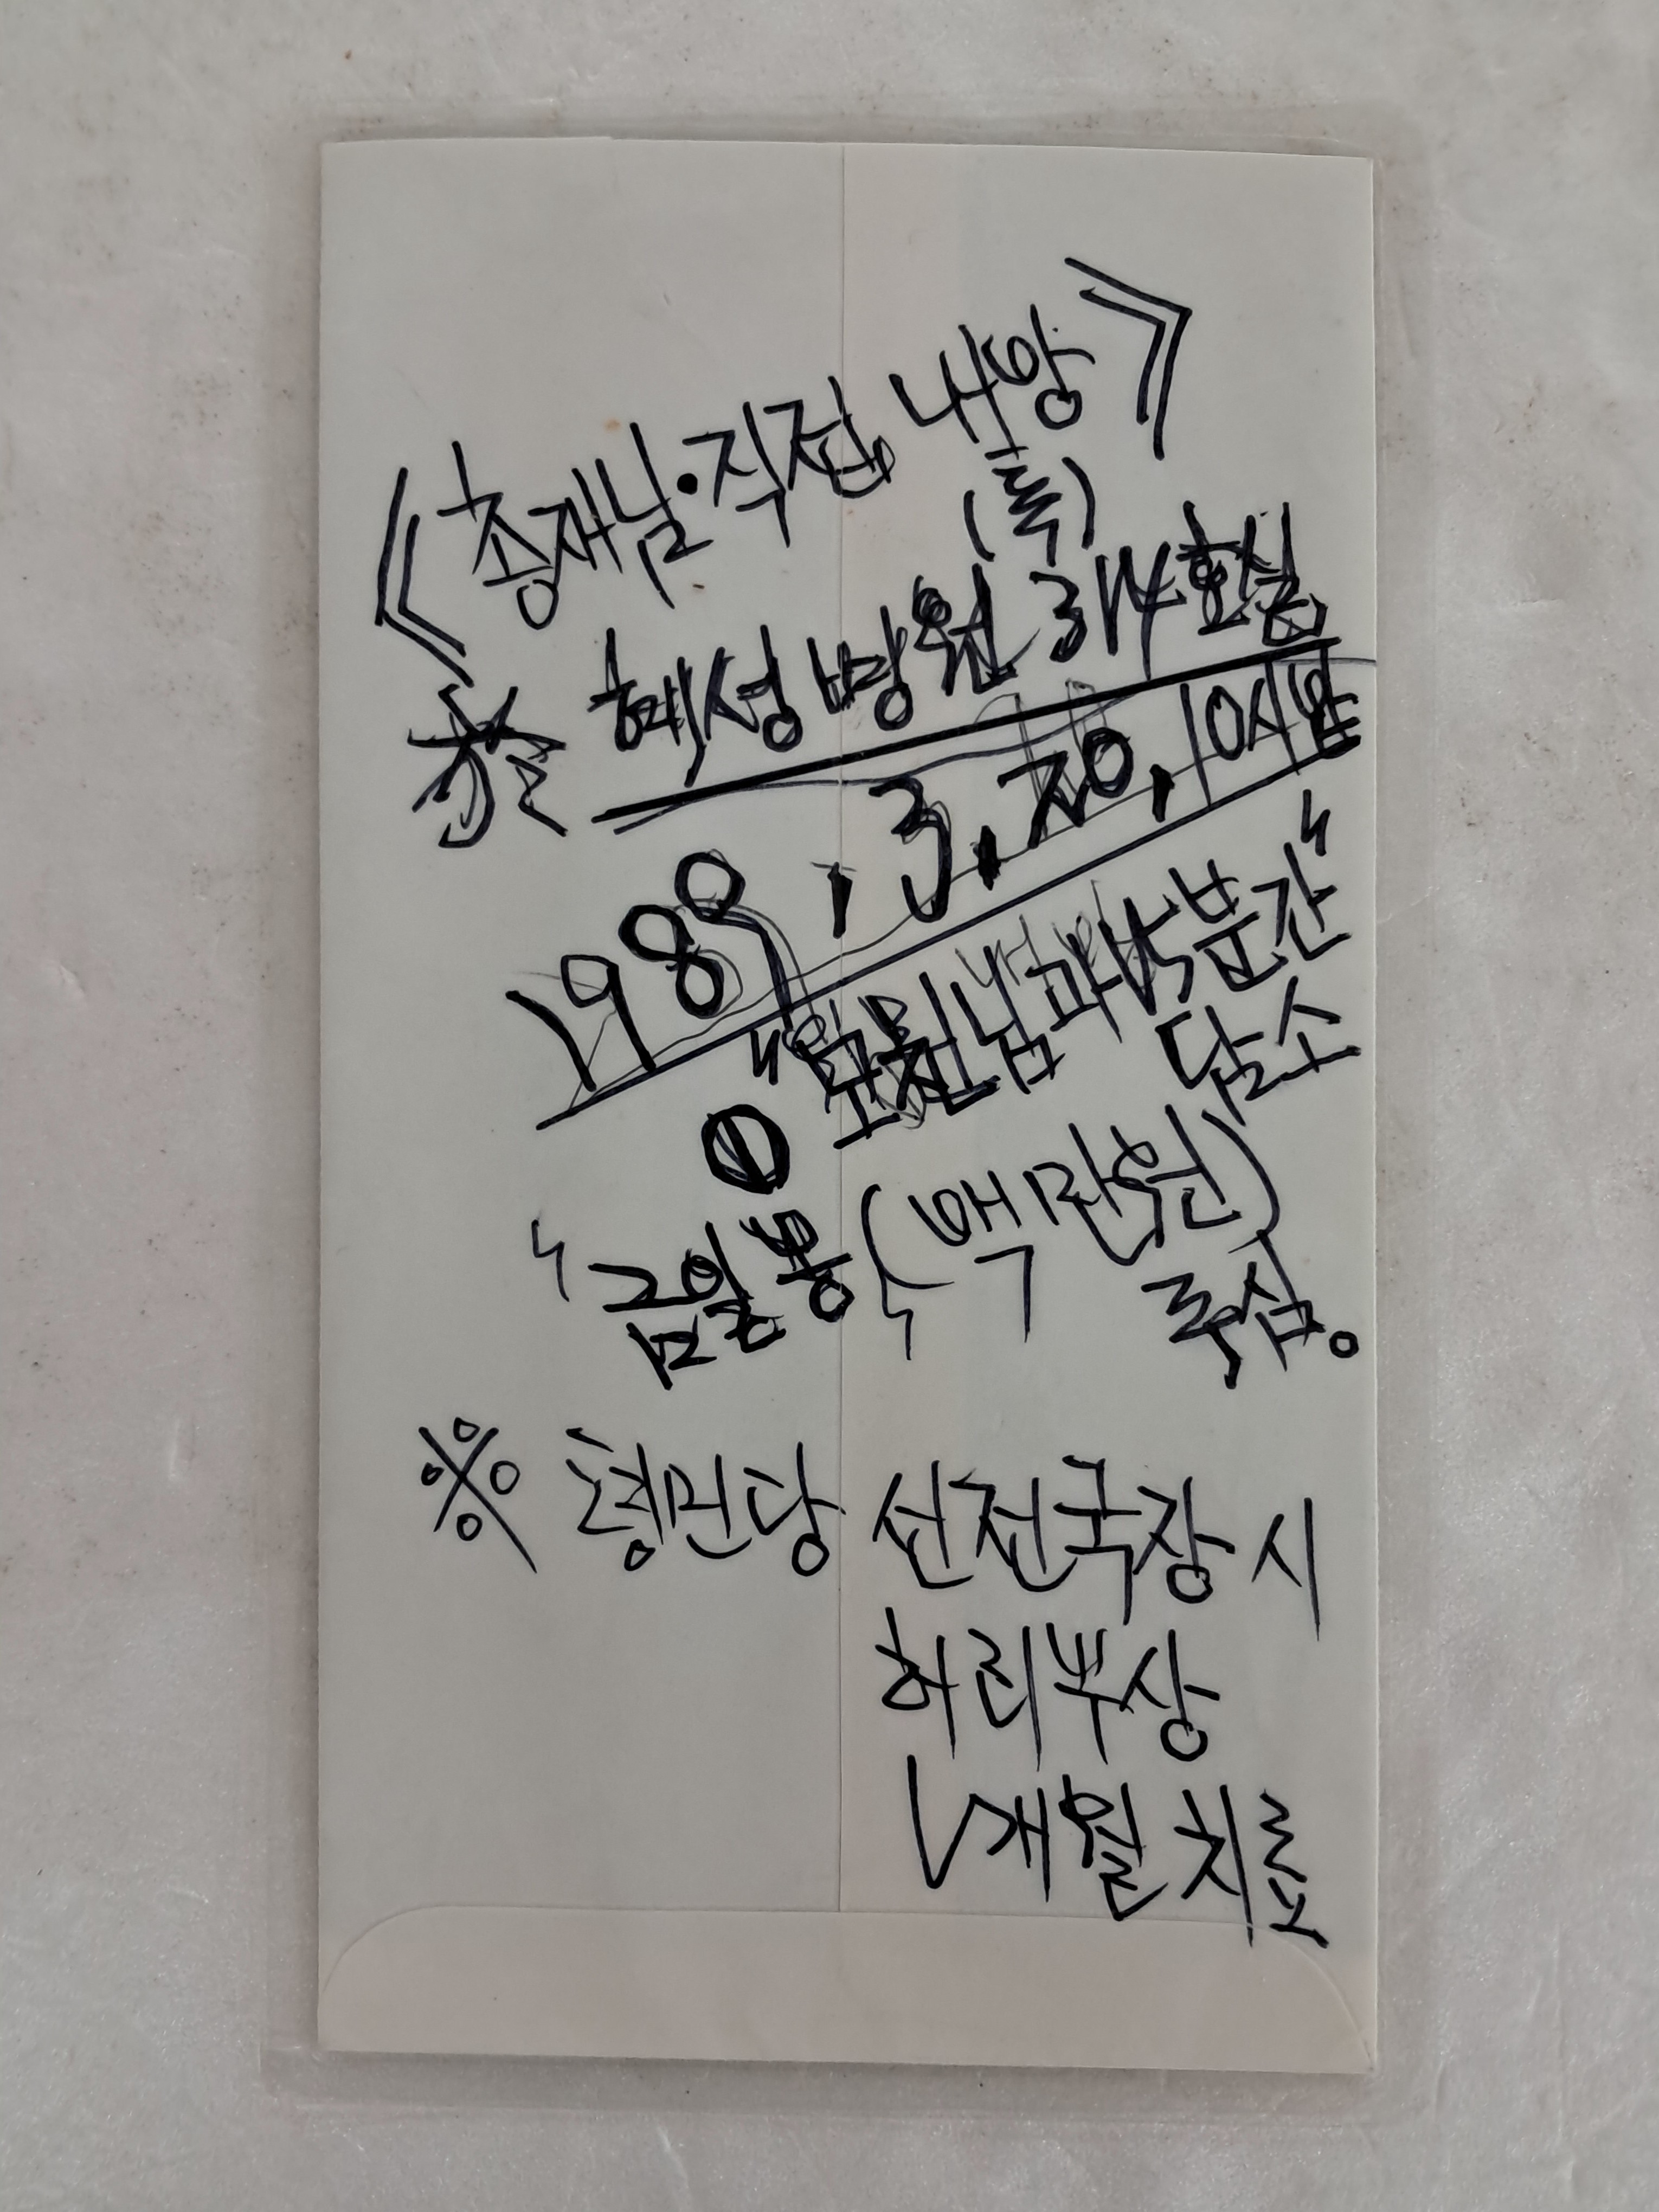 《총재님·직접 내방》
(특)
※ 혜성병원 314호실
1989, 3, 20, 10시반
"모친님과 45분간"
담소
①
"금일봉(백만원)"
주심。
※ 평민당 선전국장 시
허리부상
1개월 치료